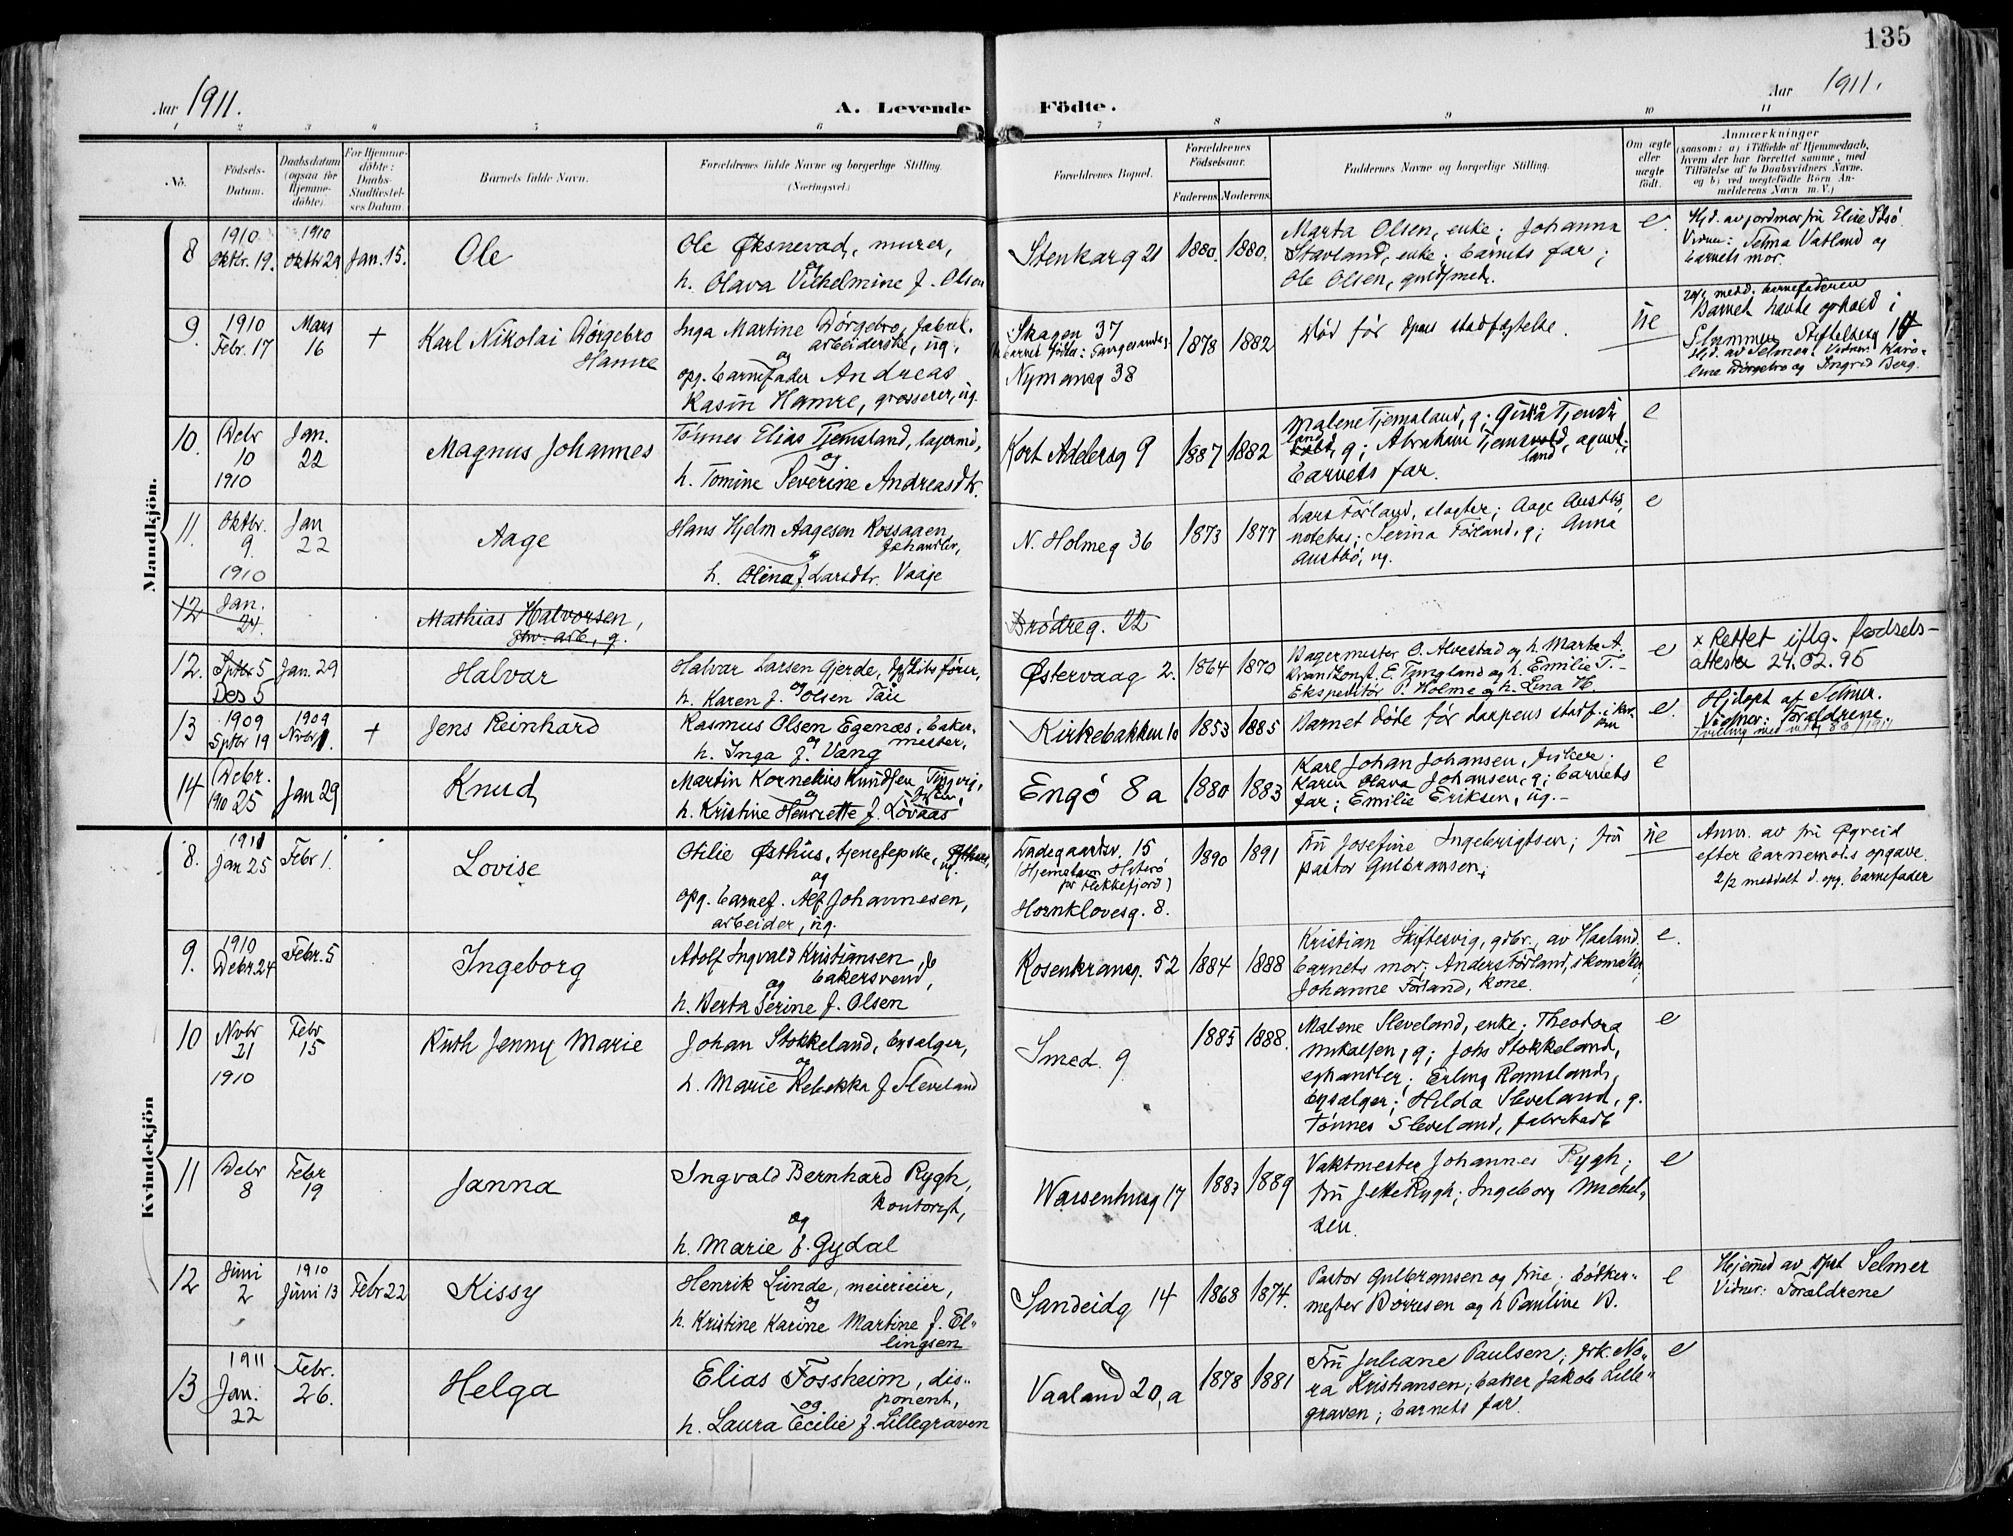 135
Aar 1911.
A. Levende Födte.
Aar 1911.
1 2 3 4 5 6 7 8 9 10 11
No.
Födsels-
Datum.
Daabsdatum
(ogsaa for
Hjemme-
döbte)
For Hjemme-
döbte:
Daabs-
Stadfæstel-
ses Datum.
Barnets fulde Navn.
Forældrenes fulde Navne og borgerlige Stilling.
(Næringsvei.)
Forældrenes Bopæl.
Forældrenes
Födselsaar.
Faderens. Moderens.
Faddernes Navne og borgerlige Stilling.
Om ægte
eller
uægte
födt.
Anmærkninger
(saasom: a) i Tilfælde af Hjemmedaab,
hvem der har forrettet samme, med
Tilföielse af to Daabsvidners Navne,
og b) ved uægtefödte Börn An-
melderens Navn m. V.)
Mandkjön.
8
1910
Oktbr. 19.
1910
Oktbr 29
Jan. 15.
Ole
Ole Øksnevad, murer,
og
h. Olava Vilhelmine f. Olsen
Stenkarg 21
1880. 1880.
Marta Olsen, enke; Johanna
Stavland, enke; barnets far;
Ole Olsen, guldsmed.
e.
Hjd. av jordmor fru Elise
Vidner: Selma Vatland og
barnets mor.
9.
1910
Febr. 17
Mars
16
+
Karl Nikolai Børgebro
Hamre
Inga Martine Børgebro, fabrik-
arbeiderske, ug.
og
opg. barnefader Andreas
Rasin Hamre, grosserer, ug.
Skagen 37
Nymansg 38
1878 1882
Død før stadfæstelse.
ue
medd. barnefaderen
Barnet havde ophold i
Stiftelsberg
Hjd. av Selmer. Vidner: Karo-
line Børgebro og Ingrid Berg.
10.
Debr
10
1910
Jan.
22
Magnus Johannes
Tønnes Elias Tjemsland,
og
h. Tomine Severine Andreasdtr.
Kort Adelersg 9
1887 1882
Malene Tjemsland, g;
land, g; Abraham
land
barnets far.
e
11.
Oktbr.
9.
1910
Jan
22
Aage
Hans Hjelm Aagesen Rossagen
og
h. Olina f. Larsdtr. Vaaje
N. Holmeg 36
1873 1877
Lars Førland, slagter; Aage Austbø,
notebas; Serina Førland, g; Anna
Austbø, ug.
e
12
Jan.
24.
Mathias Halvorsen,
arb, g.
Brødreg. 22
12.
Sptbr 5
Des 5
Jan. 29
Halvar
Halvar Larsen Gjerde, fører,
og
h. Karen f. Olsen Tau
Østervaag 2.
1864 1870
Bagermester O. Alvestad og h. Marta A.
E. Tungland og h. Emilie T.-
Ekspeditør P. Holme og h. Lina H.
e
x Rettet iflg. fødsels-
attester 24.02.95
13
1909
Sptbr 19
1909
Novbr 1.
+
Jens Reinhard
Rasmus Olsen Egenæs, baker-
mester,
og
h. Inga f. Vang
Kirkebakken 10
1853 1885
Barnet døde før daapens stadf. i
e.
Hjdøpt af Selmer.
Vidner: Foraldrene
14
Debr.
1910 25
Jan 29
Knud
Martin Kornelius Knudsen Tingvig,
og
h. Kristine Henriette f. Løvaas
Engø 8 a
1880 1883
Karl Johan Johansen, fisker;
Karen Olava Johansen, g; barnets
far; Emilie Eriksen, ug.-
e
Kvindekjön
8.
1911
Jan 25
Febr 1.
Lovise
Otilie Østhus, tjenestepike,
ug.
og
opg. barnef. Alf Johannesen,
arbeider, ug.
Ladegaardsv. 15
(Hjemstavn Hiterø
pr Flekkefjord)
Hornklovesg. 8.
1890 1891
Fru Josefine Ingebrigtsen; fru
pastor Gulbransen;
ue
Anm. av fru Øgreid
efter barnemors opgave.
2/2 meddelt d. opg. barnefader
9.
1910
Debr. 24
Febr. 5
Ingeborg
Adolf Ingvald Kristiansen,
bakersvend,
og
h. Berta Serine f. Olsen
Rosenkransg. 52
1884 1888
Kristian Skiftesvig, gdbr. av Haaland.
barnets mor; Anders Førland, skomaker,
Johanne Førland, kone.
e.
10
Novbr
21
1910
Febr
15
Ruth Jenny Marie
Johan Stokkeland, bysælger,
og
h. Marie Rebekka f Sleveland
Smed. 9
1885 1888.
Malene Sleveland, enke; Theodora
Mikalsen, g; Johs Stokkeland,
Erling Ramsland,
bysælger; Hilda Sleveland, g.
Tønnes Sleveland,
e
11
Debr
8
Febr
19
Janna
Ingvald Bernhard Rygh,
kontorist,
og
h. Marie f. Gydal
Waisenhusg 17
1883 1889
Vaktmester Johannes Rygh;
fru Jette Rygh; Ingeborg Michel-
sen.
e
12
Juni
2
1910
Juni 13
Febr 22
Kissy
Henrik Lunde, meierieier,
og
h. Kristine Karine Martine f. El-
lingsen
Sandeidg 14
1868 1874.
Pastor Gulbransen og frue; bødker-
mester Børresen og h Pauline B.
e
Hjemmed av Selmer
Vidner: Foraldrene
13
1911
Jan.
22
Febr.
26.
Helga
Elias Fossheim, dis-
ponent,
og
h. Laura Cecilie f. Lillegraven
Vaaland 20, a
1878 1881
Fru Juliane Paulsen; frk. No-
ra Kristiansen; baker Jakob Lille-
graven; barnets far.
e